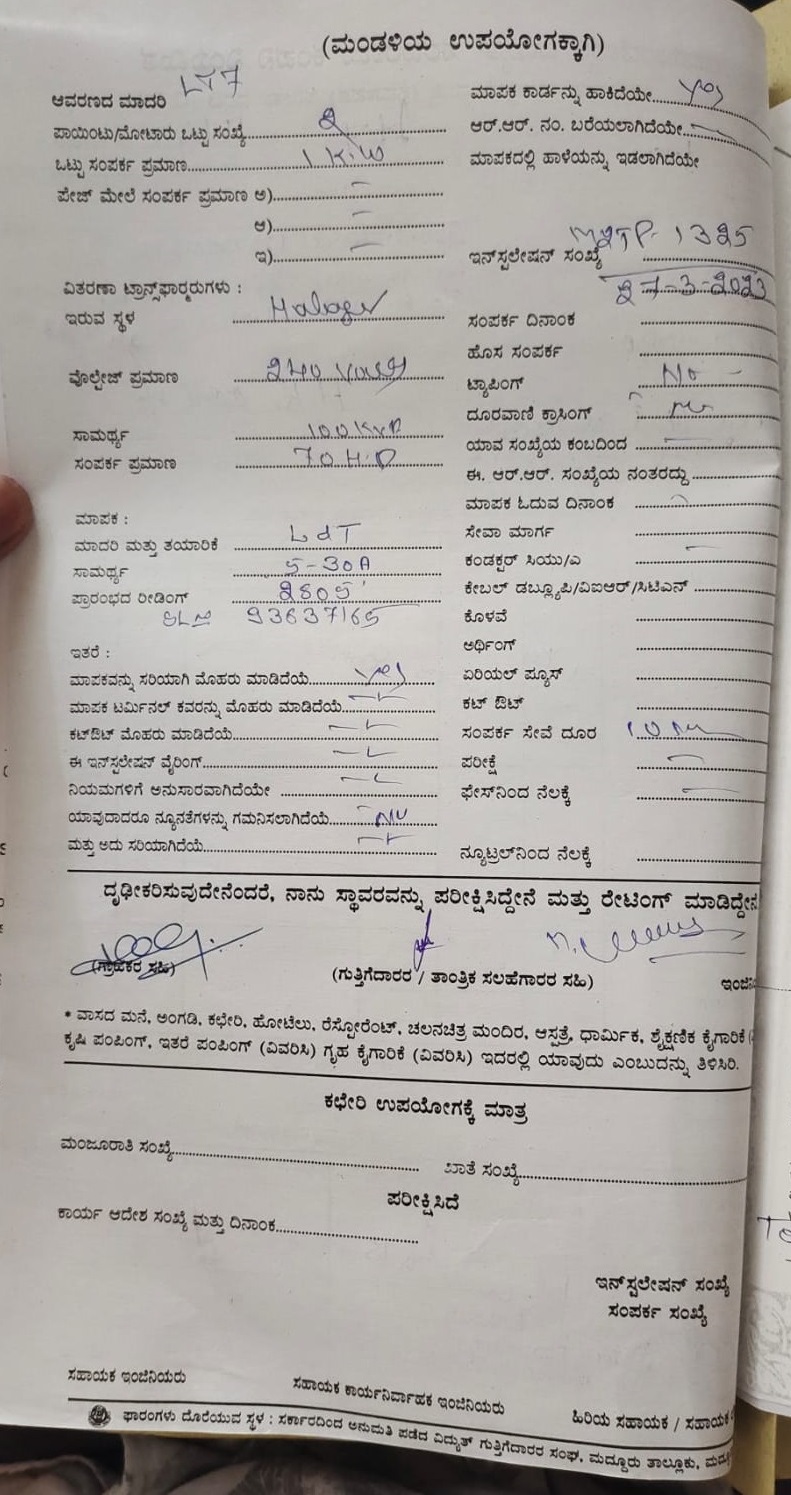 (ಮಂಡಳಿಯ ಉಪಯೋಗಕ್ಕಾಗಿ)
ಆವರಣದ ಮಾದರಿ LT7
ಪಾಯಿಂಟು/ಮೋಟಾರು ಒಟ್ಟು ಸಂಖ್ಯೆ 2
ಒಟ್ಟು ಸಂಪರ್ಕ ಪ್ರಮಾಣ 1 K.W
ಪೇಜ್ ಮೇಲೆ ಸಂಪರ್ಕ ಪ್ರಮಾಣ ಅ)
ಆ)
ಇ)
ವಿತರಣಾ ಟ್ರಾನ್ಸ್‌ಫಾರ್ಮರುಗಳು :
ಇರುವ ಸ್ಥಳ
ವೊಲ್ಟೇಜ್ ಪ್ರಮಾಣ 240
ಸಾಮರ್ಥ್ಯ 100 KVA
ಸಂಪರ್ಕ ಪ್ರಮಾಣ 70 H.P
ಮಾಪಕ :
ಮಾದರಿ ಮತ್ತು ತಯಾರಿಕೆ L&T
ಸಾಮರ್ಥ್ಯ 5-30A
ಪ್ರಾರಂಭದ ರೀಡಿಂಗ್ 2805
93637165
ಇತರೆ :
ಮಾಪಕವನ್ನು ಸರಿಯಾಗಿ ಮೊಹರು ಮಾಡಿದೆಯೆ yes
ಮಾಪಕ ಟರ್ಮಿನಲ್ ಕವರನ್ನು ಮೊಹರು ಮಾಡಿದೆಯೆ
ಕಟ್‌ಔಟ್ ಮೊಹರು ಮಾಡಿದೆಯೆ
ಈ ಇನ್‌ಸ್ಟಲೇಷನ್ ವೈರಿಂಗ್
ನಿಯಮಗಳಿಗೆ ಅನುಸಾರವಾಗಿದೆಯೇ
ಯಾವುದಾದರೂ ನ್ಯೂನತೆಗಳನ್ನು ಗಮನಿಸಲಾಗಿದೆಯೆ No
ಮತ್ತು ಅದು ಸರಿಯಾಗಿದೆಯೆ
ಮಾಪಕ ಕಾರ್ಡನ್ನು ಹಾಕಿದೆಯೇ yes
ಆರ್.ಆರ್. ನಂ. ಬರೆಯಲಾಗಿದೆಯೇ
ಮಾಪಕದಲ್ಲಿ ಹಾಳೆಯನ್ನು ಇಡಲಾಗಿದೆಯೇ
ಇನ್‌ಸ್ಟಲೇಷನ್ ಸಂಖ್ಯೆ 1325
27-3-2023
ಸಂಪರ್ಕ ದಿನಾಂಕ
ಹೊಸ ಸಂಪರ್ಕ
ಟ್ಯಾಪಿಂಗ್ No
ದೂರವಾಣಿ ಕ್ರಾಸಿಂಗ್
ಯಾವ ಸಂಖ್ಯೆಯ ಕಂಬದಿಂದ
ಈ. ಆರ್.ಆರ್. ಸಂಖ್ಯೆಯ ನಂತರದ್ದು
ಮಾಪಕ ಓದುವ ದಿನಾಂಕ
ಸೇವಾ ಮಾರ್ಗ
ಕಂಡಕ್ಟರ್ ಸಿಯು/ಎ
ಕೇಬಲ್ ಡಬ್ಲ್ಯೂಪಿ/ವಿಐಆರ್/ಸಿಟಿಎನ್
ಕೊಳವೆ
ಅರ್ಥಿಂಗ್
ಏರಿಯಲ್ ಪ್ಯೂಸ್
ಕಟ್ ಔಟ್
ಸಂಪರ್ಕ ಸೇವೆ ದೂರ 10 m
ಪರೀಕ್ಷೆ
ಫೇಸ್‌ನಿಂದ ನೆಲಕ್ಕೆ
ನ್ಯೂಟ್ರಲ್‌ನಿಂದ ನೆಲಕ್ಕೆ
ದೃಢೀಕರಿಸುವುದೇನೆಂದರೆ, ನಾನು ಸ್ಥಾವರವನ್ನು ಪರೀಕ್ಷಿಸಿದ್ದೇನೆ ಮತ್ತು ರೇಟಿಂಗ್ ಮಾಡಿದ್ದೇನೆ
(ಗ್ರಾಹಕರ ಸಹಿ)
(ಗುತ್ತಿಗೆದಾರರ / ತಾಂತ್ರಿಕ ಸಲಹೆಗಾರರ ಸಹಿ)
* ವಾಸದ ಮನೆ, ಅಂಗಡಿ, ಕಛೇರಿ, ಹೋಟೆಲು, ರೆಸ್ಟೋರೆಂಟ್, ಚಲನಚಿತ್ರ ಮಂದಿರ, ಆಸ್ಪತ್ರೆ, ಧಾರ್ಮಿಕ, ಶೈಕ್ಷಣಿಕ ಕೈಗಾರಿಕೆ
ಕೃಷಿ ಪಂಪಿಂಗ್, ಇತರೆ ಪಂಪಿಂಗ್ (ವಿವರಿಸಿ) ಗೃಹ ಕೈಗಾರಿಕೆ (ವಿವರಿಸಿ) ಇದರಲ್ಲಿ ಯಾವುದು ಎಂಬುದನ್ನು ತಿಳಿಸಿರಿ.
ಕಛೇರಿ ಉಪಯೋಗಕ್ಕೆ ಮಾತ್ರ
ಮಂಜೂರಾತಿ ಸಂಖ್ಯೆ
ಖಾತೆ ಸಂಖ್ಯೆ
ಪರೀಕ್ಷಿಸಿದೆ
ಕಾರ್ಯ ಆದೇಶ ಸಂಖ್ಯೆ ಮತ್ತು ದಿನಾಂಕ
ಇನ್‌ಸ್ಟಲೇಷನ್ ಸಂಖ್ಯೆ
ಸಂಪರ್ಕ ಸಂಖ್ಯೆ
ಸಹಾಯಕ ಇಂಜಿನಿಯರು
ಸಹಾಯಕ ಕಾರ್ಯನಿರ್ವಾಹಕ ಇಂಜಿನಿಯರು
ಹಿರಿಯ ಸಹಾಯಕ / ಸಹಾಯಕ
ಫಾರಂಗಳು ದೊರೆಯುವ ಸ್ಥಳ : ಸರ್ಕಾರದಿಂದ ಅನುಮತಿ ಪಡೆದ ವಿದ್ಯುತ್ ಗುತ್ತಿಗೆದಾರರ ಸಂಘ, ಮದ್ದೂರು ತಾಲ್ಲೂಕು,